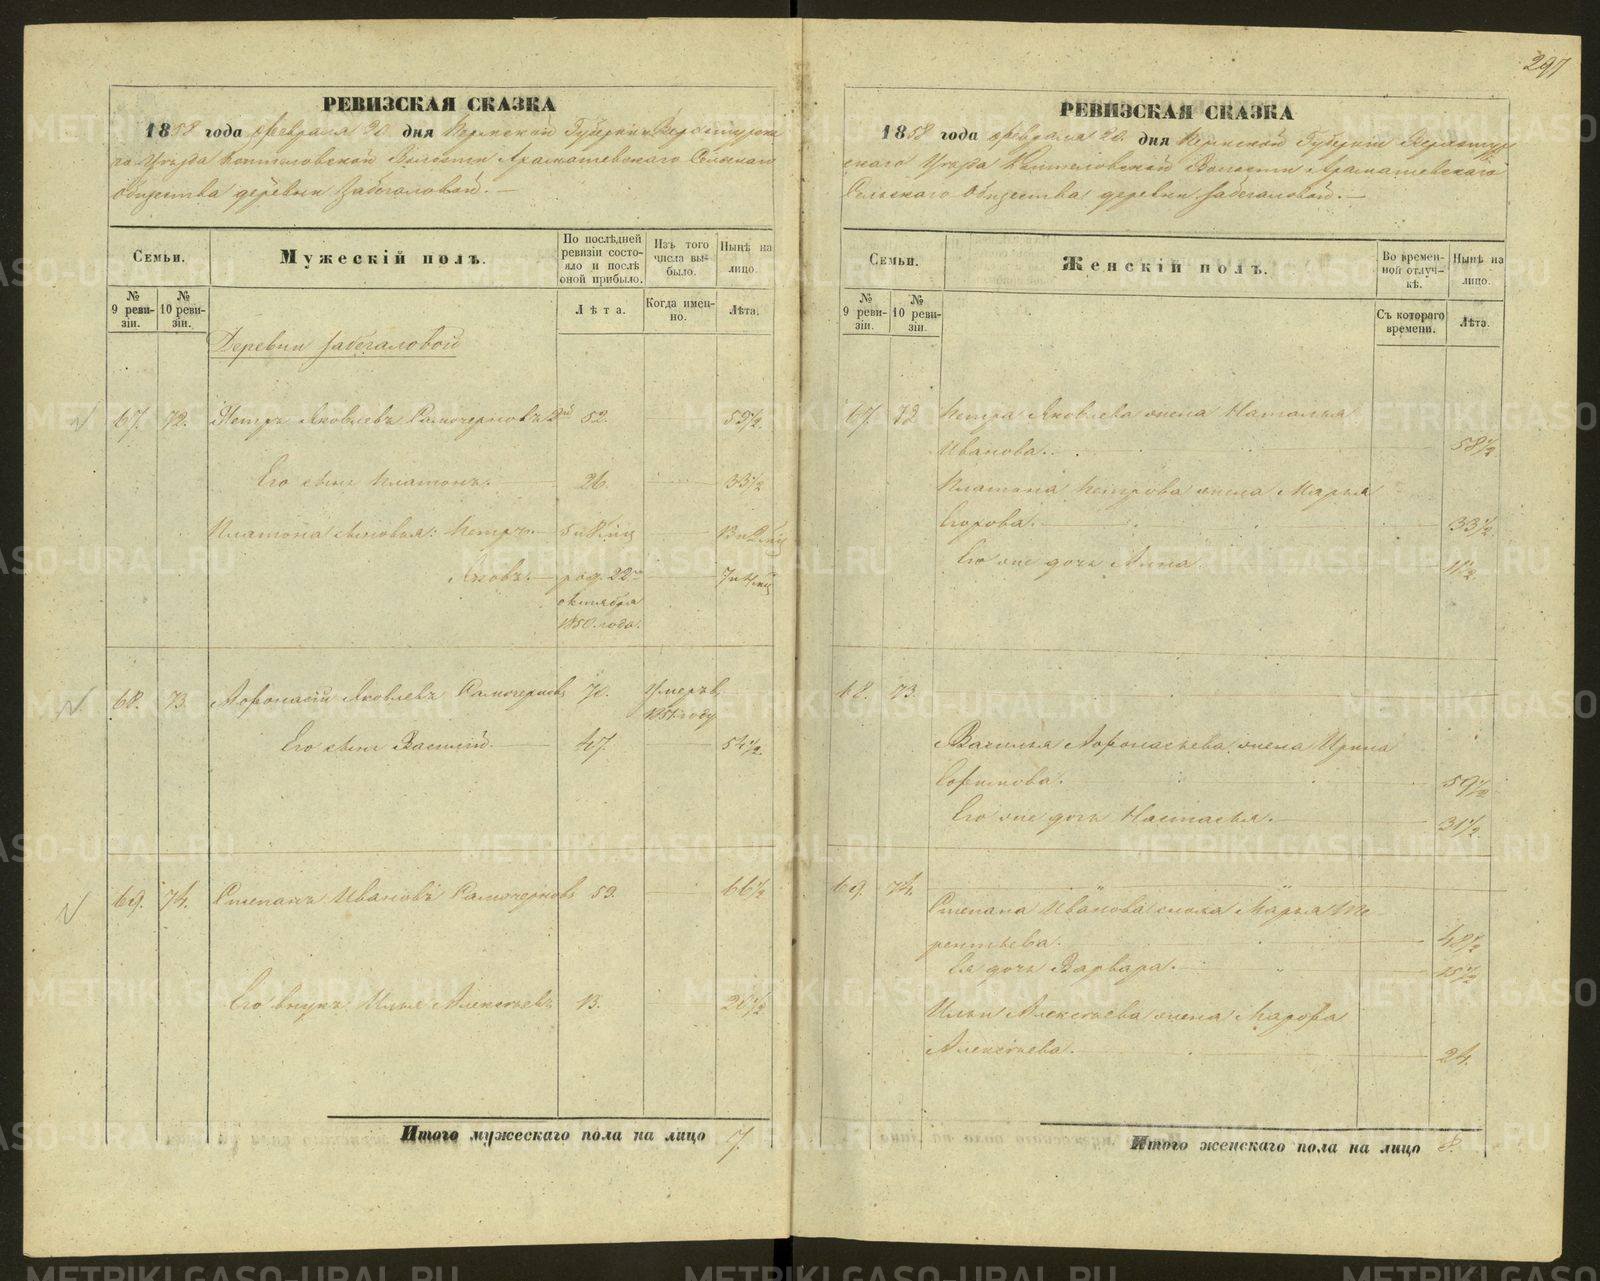 297
РЕВИЗСКАЯ СКАЗКА
1858 года февраля 20 дня Пермской Губернiи Верхотурска
го Уѣзда Коптеловской Волости Арамашевскаго Сельскаго
Общества деревни Забегаловой. —
Семьи.
Мужескiй полъ.
По послѣдней ревизiи состояло и послѣ оной прибыло.
Изъ того числа выбыло.
Нынѣ на лицо.
№ 9 ревизiи.
№ 10 ревизiи.
Лѣта.
Когда именно.
Лѣта.
Деревни Забегаловой
67. 72. Петръ Яковлевъ Самочерновъ 2й 52. 59½.
Его сынъ Платонъ. 26. 33½
Платона сыновья: Петръ. 5 и 8 мц 13 и 2 мц
Яковъ. — род. 22го 7 и 4 мц
октября
1850. года.
68. 73. Афонасiй Яковлевъ Самочерновъ 70. Умеръ въ
1851 году
Его сынъ Василiй. 47. 54½
69. 74. Степанъ Ивановъ Самочерновъ 59. 66½
Его внукъ Илья Алексѣевъ 13. 20½
Итого мужескаго пола на лицо 7.
РЕВИЗСКАЯ СКАЗКА
1858 года февраля 20. дня Пермской Губернiи Верхотур
скаго Уѣзда Коптеловской Волости Арамашевскаго
Сельскаго Общества деревни Забегаловой. —
Семьи.
Женскiй полъ.
Во временной отлучкѣ.
Нынѣ на лицо.
№ 9 ревизiи.
№ 10 ревизiи.
Съ котораго времени.
Лѣта.
67. 72. Петра Яковлева жена Наталья
Иванова. 58½
Платона Петрова жена Марья
Егорова. 33½
Его же дочь Анна. 11½
68. 73.
Василья Афонасьева жена Ирина
59½
Его же дочь Настасья. 31½
69. 74.
Степана Иванова сноха Марья Те
рентьева. 48½
Ея дочь Варвара. 15½
Ильи Алексѣева жена Марфа
Алексѣева. 24.
Итого женскаго пола на лицо 8.
METRIKI.GASO-URAL.RU